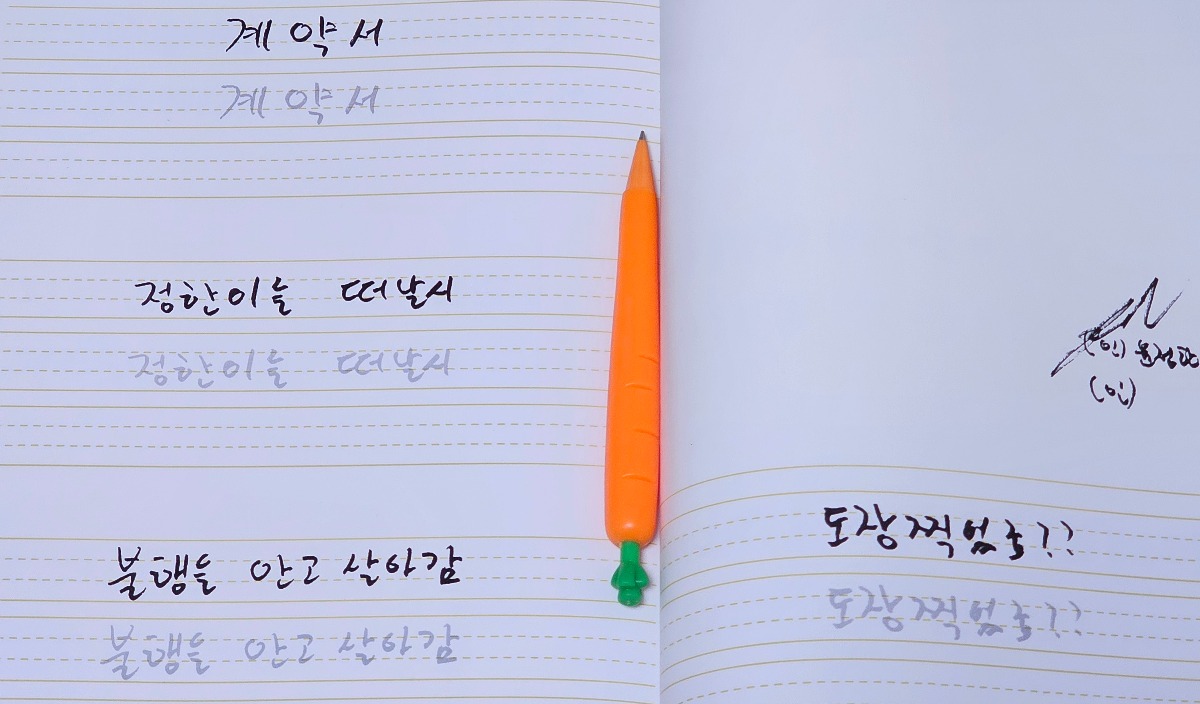 계약서
계약서
정한이를 떠날시
정한이를 떠날시
불행을 안고 살아감
불행을 안고 살아감
(인) 윤정한
(인)
도장찍었죠??
도장찍었죠??